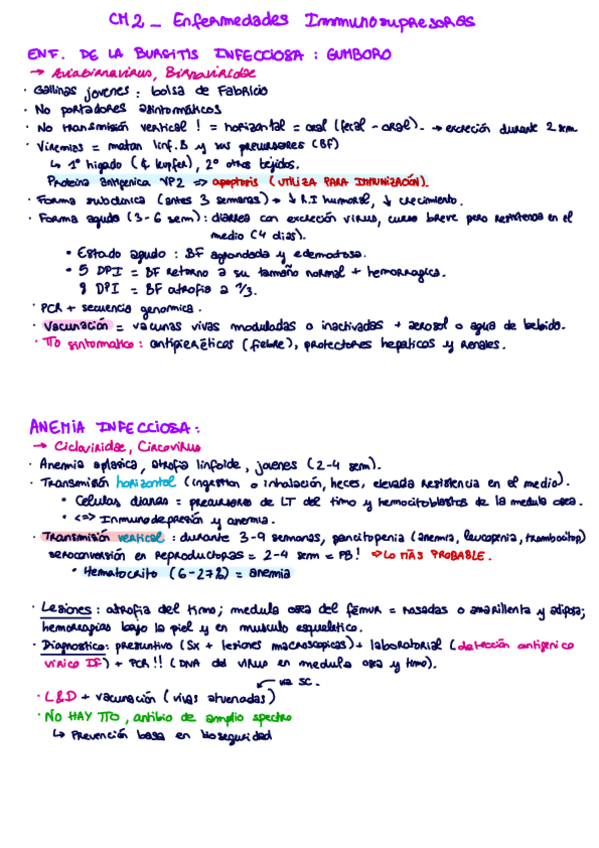 CM2 _ Enfermedades Inmunosupresoras
ENF. DE LA BURSITIS INFECCIOSA : GUMBORO
→ Aviabirnavirus, Birnaviridae
· Gallinas jovenes : bolsa de Fabricio
· No portadores asintomáticos
· No transmisión vertical ! = horizontal = oral (fecal - oral). → excreción durante 2 sem
· Viremias = matan linf. B y sus precursores (BF)
↳ 1º higado (& kupfer), 2º otros tejidos.
Proteina antigenica VP2 => apoptosis (UTILIZA PARA INMUNIZACIÓN).
· Forma subclinica (antes 3 semanas) → ↓ R.I humoral, ↓ crecimiento.
· Forma aguda (3-6 sem) : diarrea con excreción virus, curso breve pero resistencia en el
medio (4 dias).
• Estado agudo : BF agrandada y edematosa.
• 5 DPI = BF retorno a su tamaño normal + hemorragica.
8 DPI = BF atrofia a 1/3.
· PCR + secuencia genomica.
· Vacunación = vacunas vivas moduladas o inactivadas + aerosol o agua de bebida.
· TTO sintomatico : antipieréticos (fiebre), protectores hepaticos y renales.
ANEMIA INFECCIOSA :
→ Cicloviridae, Circovirus
· Anemia aplasica, atrofia linfoide, jovenes (2-4 sem).
· Transmisión horizontal (ingestion o inhalación, heces, elevada resistencia en el medio).
• Celulas dianas = precursores de LT del timo y hemocitoblastos de la medula osea.
• <=> Inmunodepresión y anemia.
· Transmisión vertical : durante 3-9 semanas, pancitopenia (anemia, leucopenia, trombocitop)
seroconversión en reproductoras = 2-4 sem = PB! => LO MÁS PROBABLE.
• Hematocrito (6-27%) = anemia
· Lesiones : atrofia del timo; medula osea del fémur = rosadas o amarillenta y adiposa;
hemorragias bajo la piel y en musculo esqueletico.
· Diagnostico: presuntivo (Sx + lesiones macroscopicas) + laboratorial (detección antigenico
vírico IF) + PCR !! (DNA del virus en medula osea y timo).
via SC.
· L&D + vacunación (vivas atenuadas)
· NO HAY TTO, antibio de amplio spectro
↳ Prevención basa en bioseguridad